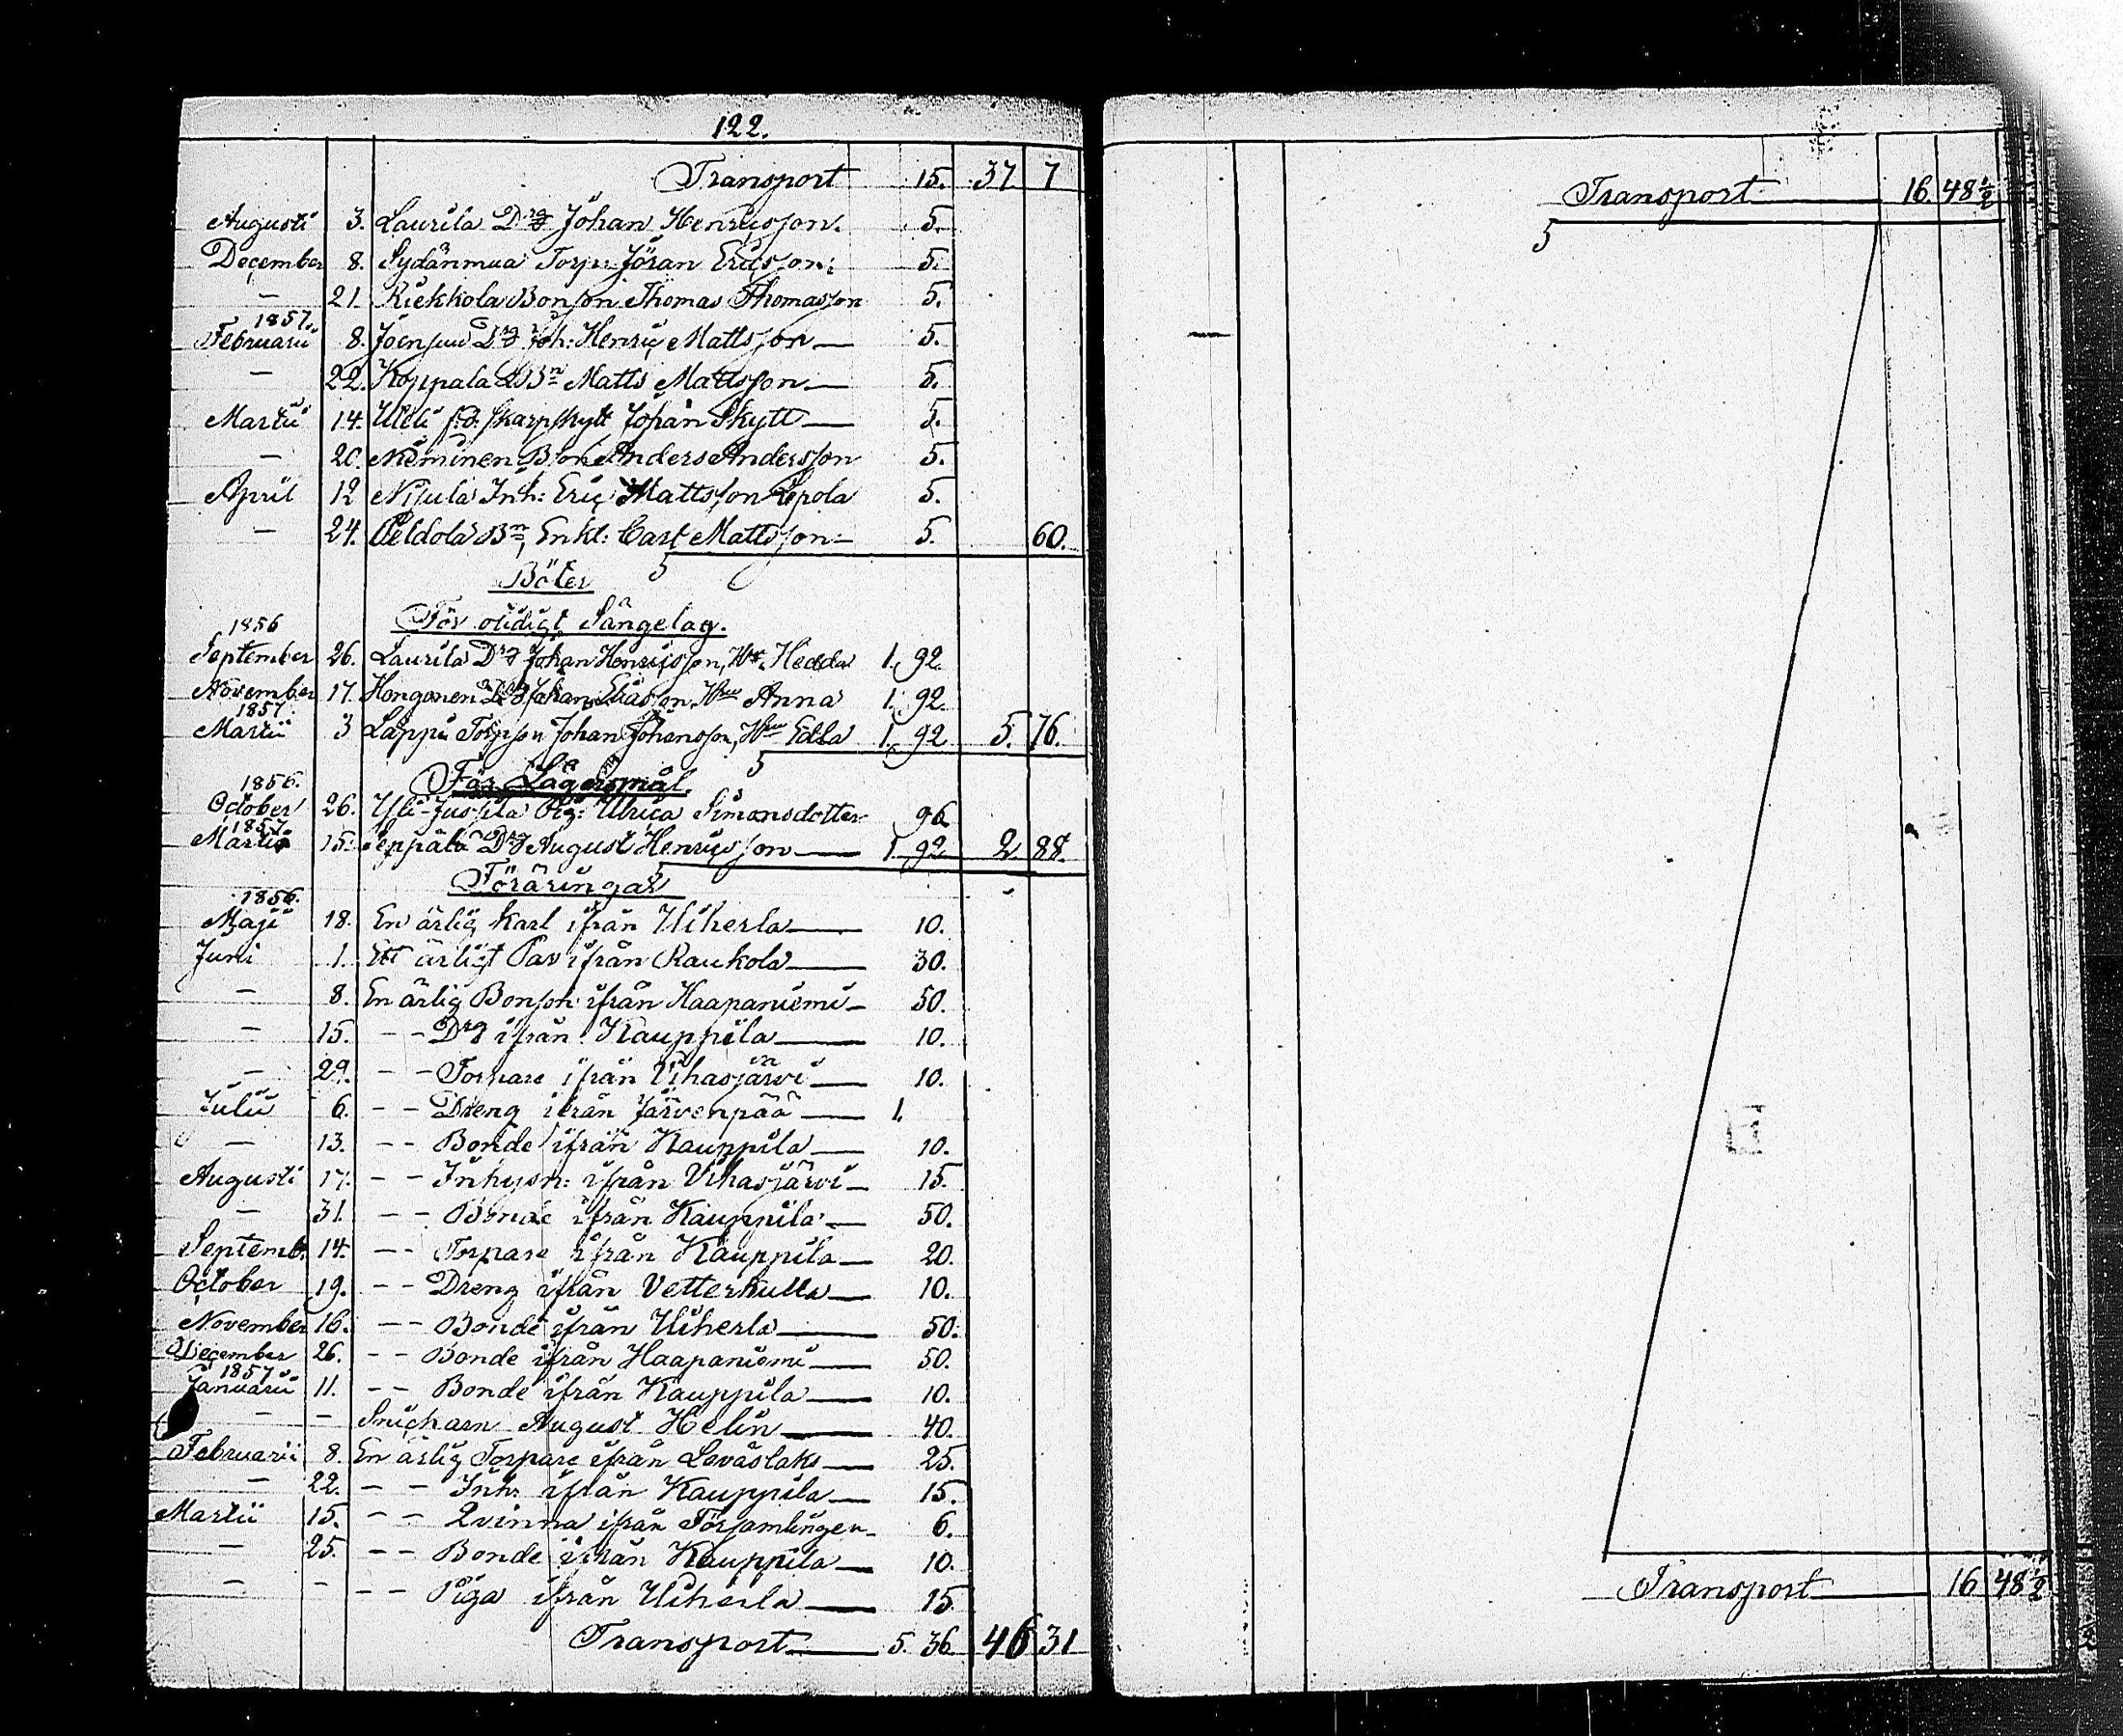 122.
Transport 15. 37. 7
Augusti 3. Laurila Drg Johan Henricsson. 5.
December 8. Sydänmaa Torp: Jöran Ericsson: 5.
— 21. Riekkola Bonson Thomas Thomasson 5.
1857.
Februarii 8. Joensuu Drg Joh: Henric Mattsson — 5.
— 22. Koppala Bn Matts Mattsson — 5.
Martii 14. Utti f.d. Skarpskytt Johan Skytt — 5.
— 20. Nieminen Bson Anders Andersson 5.
April 12 Nijula Inh: Eric Mattsson Lepola 5.
— 24. Peldola Bn, Enkl: Carl Mattsson — 5. 60.
Böter
För otidigt Sängelag.
1856
September 26. Laurila Drg Johan Henricsson, Hu. Hedda 1. 92.
November 17. Hongonen Drg Johan Eliasson, Hu Anna 1. 92.
1857.
Martii 3 Lappi Torpson Johan Johansson, Hu Edla 1. 92 5. 76.
För Lägersmål.
1856.
October 26. Yli-Jussila Pig: Ulrica Simonsdotter 96
1857
Martii 15. Seppälä Drg August Henricsson — 1. 92 2. 88.
Föräringar
1856.
Maji 18. En ärlig karl ifrån Uiherla — 10.
Juni 1. Ett ärligt Par ifrån Raukola — 30.
— 8. En ärlig Bonson ifrån Haapaniemi — 50.
— 15. — — Drg ifrån Kauppila — 10.
— 29. — — Torpare ifrån Vihasjärvi — 10.
Julii 6. — — Dreng ifrån Järvenpää — 1.
— 13. — — Bonde ifrån Kauppila — 10.
Augusti 17. — — Inhyson: ifrån Vihasjärvi — 15.
— 31. — — Bonde ifrån Kauppila — 50.
Septemb. 14. — — Torpare ifrån Kauppila — 20.
October 19. — — Dreng ifrån Vetterkulla — 10.
November 16. — — Bonde ifrån Uiherla — 50.
December 26. — — Bonde ifrån Haapaniemi — 50.
1857
Januarii 11. — — Bonde ifrån Kauppila — 10.
— — Snickarn August Helin — 40.
Februarii 8. En ärlig Torpare ifrån Leväslaks — 25.
— 22. — — Inh: ifrån Kauppila — 15.
Martii 15. — — Qvinna ifrån Församlingen — 6.
— 25. — — Bonde ifrån Kauppila — 10.
— — — — Piga ifrån Uiherla — 15
Transport — 5. 36. 46 31
Transport — 16. 48 1/2
Transport — 16 48 1/2